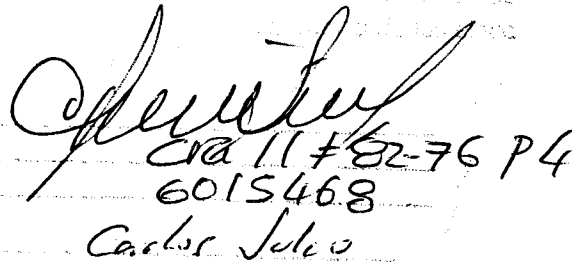 Cra 11 # 82-76 P4
6015468
Carlos Julio